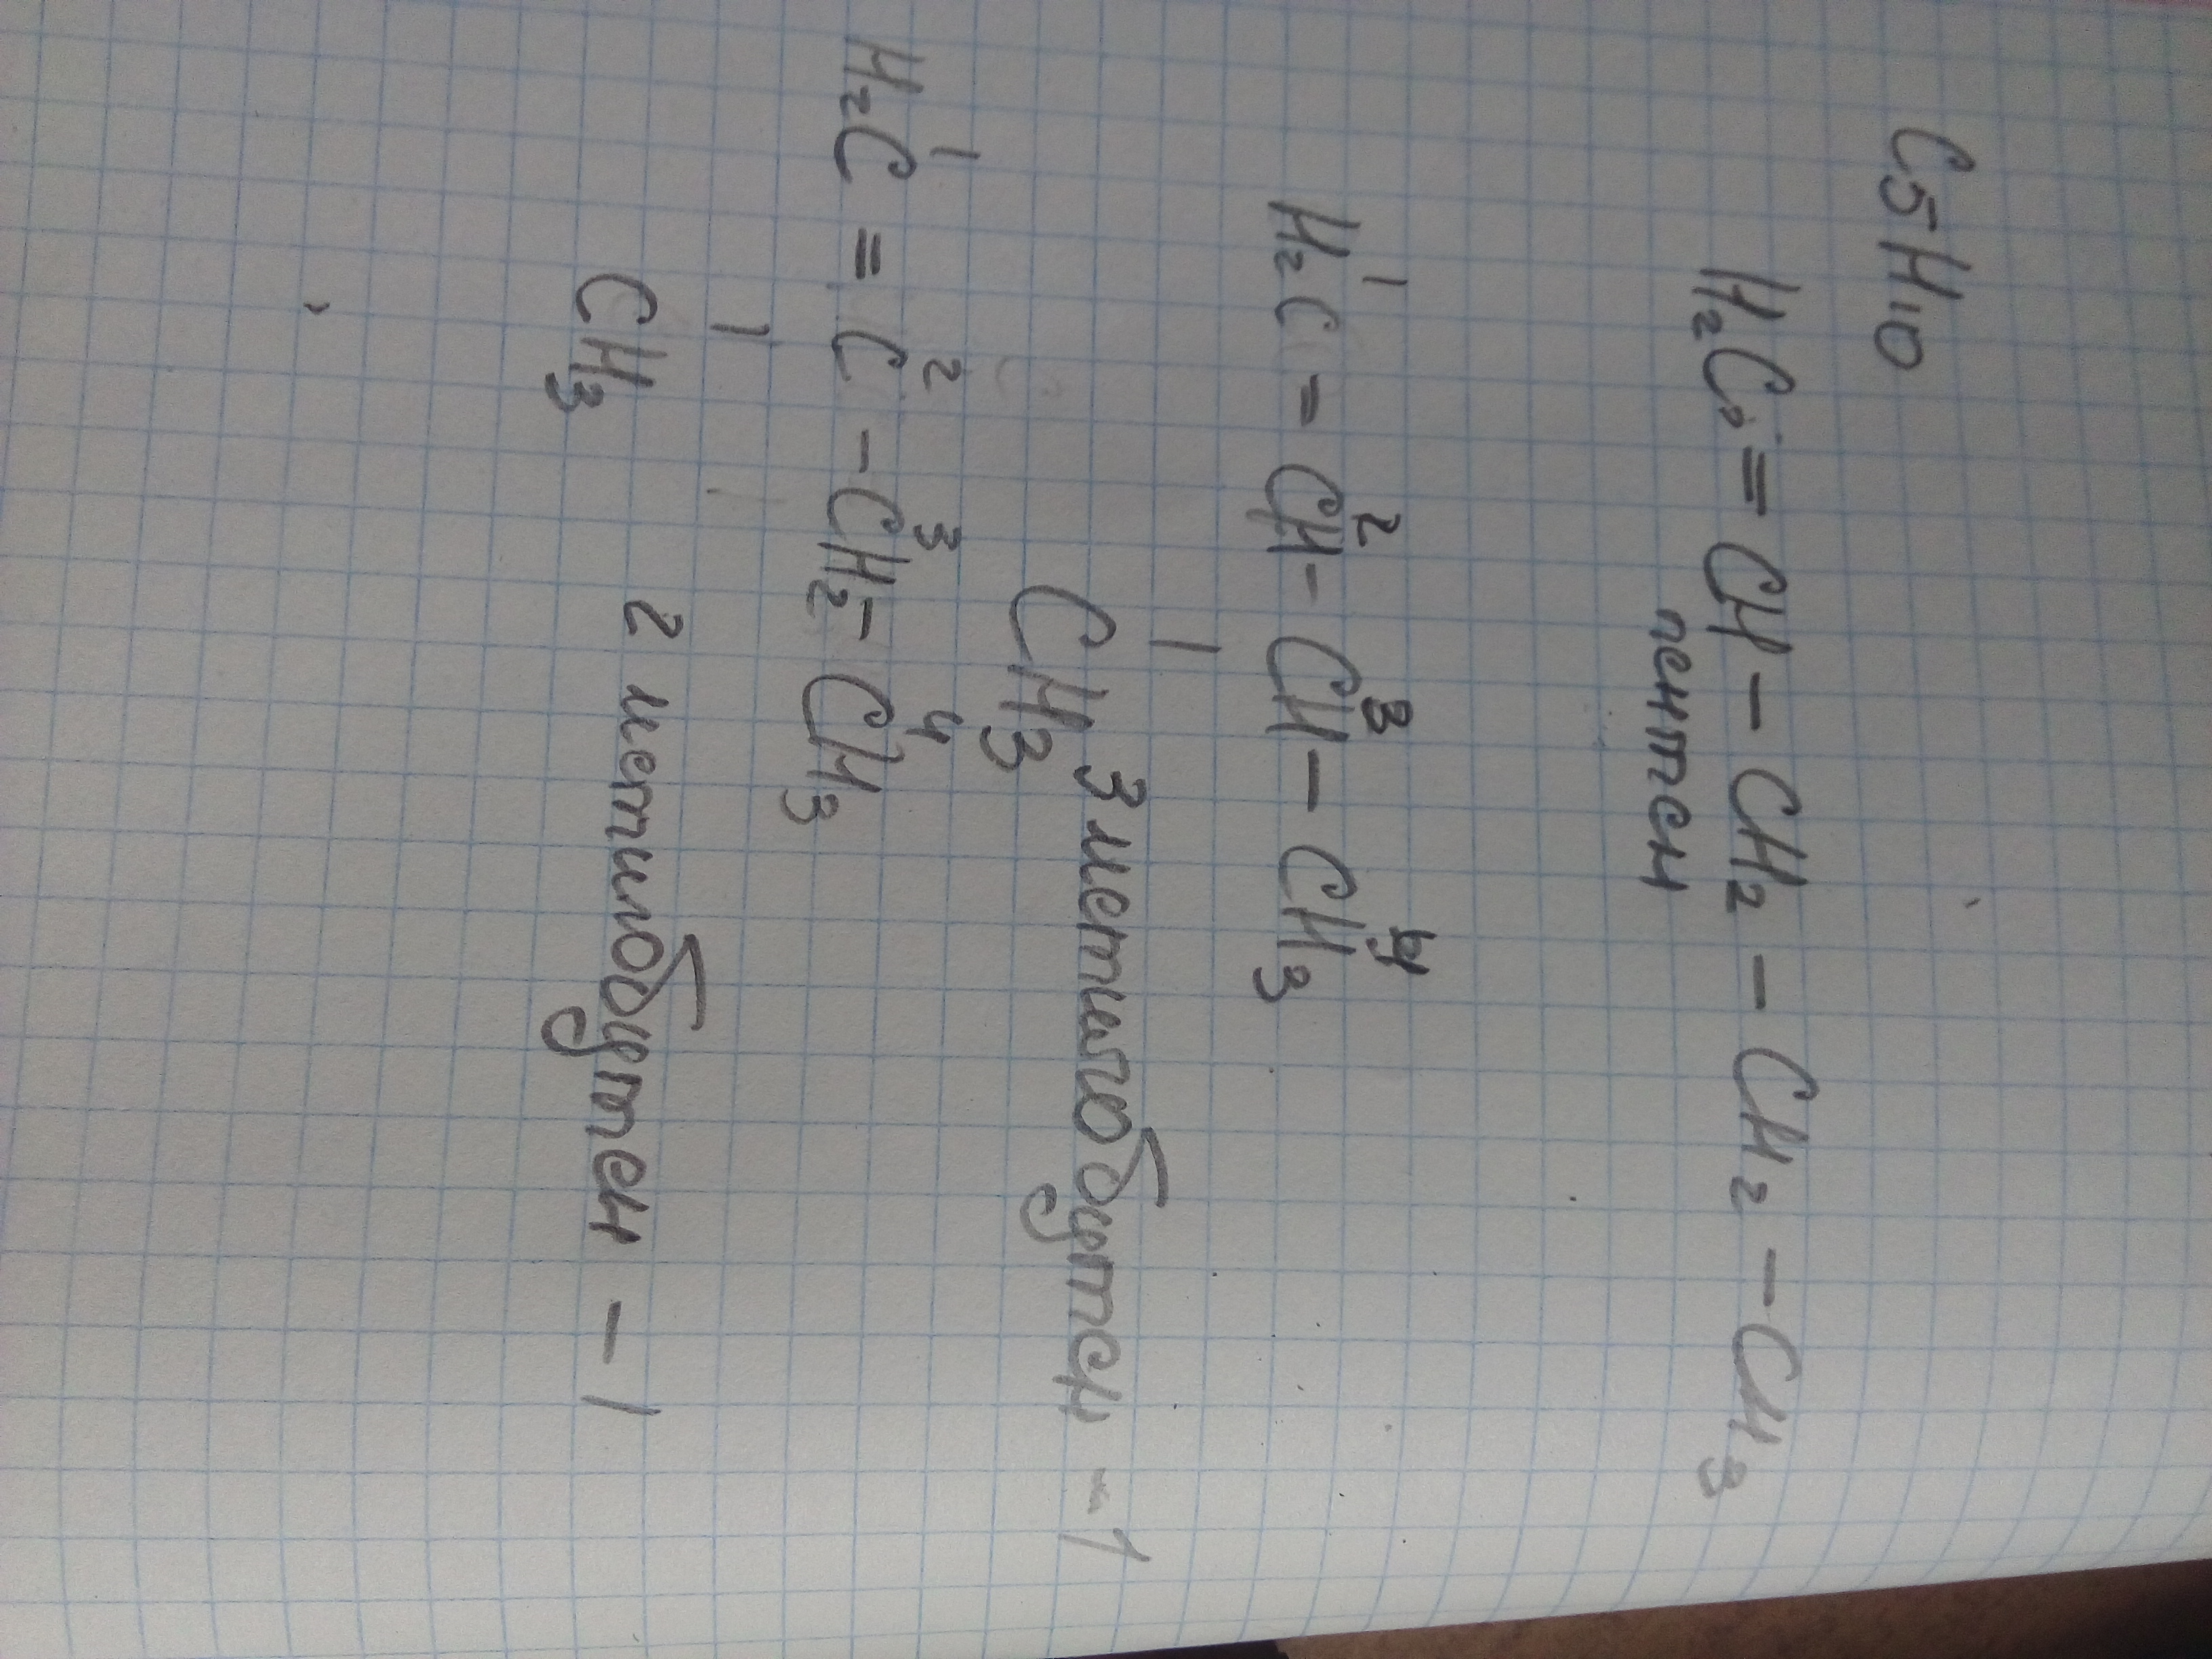 C5H10
H2C = CH - CH2 - CH2 - CH3
пентен
1 2 3 4
H2C = CH - CH - CH3
|
CH3 3 метилбутен - 1
1 2 3 4
H2C = C - CH2 - CH3
|
CH3 2 метилбутен - 1